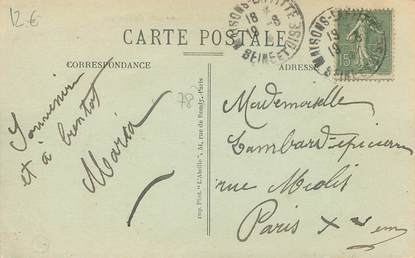 12 €
CARTE POSTALE
CORRESPONDANCE
ADRESSE
MAISONS-LAFFITTE
SEINE ET OISE
18
MAISONS-LAFFITTE
15
78
Souvenir
et à bientôt
Maria
Imp. Phot. "L'Abeille", 54, rue de Bondy, Paris
Mademoiselle
Lambard-épicerie
rue Miolis
Paris Xvem